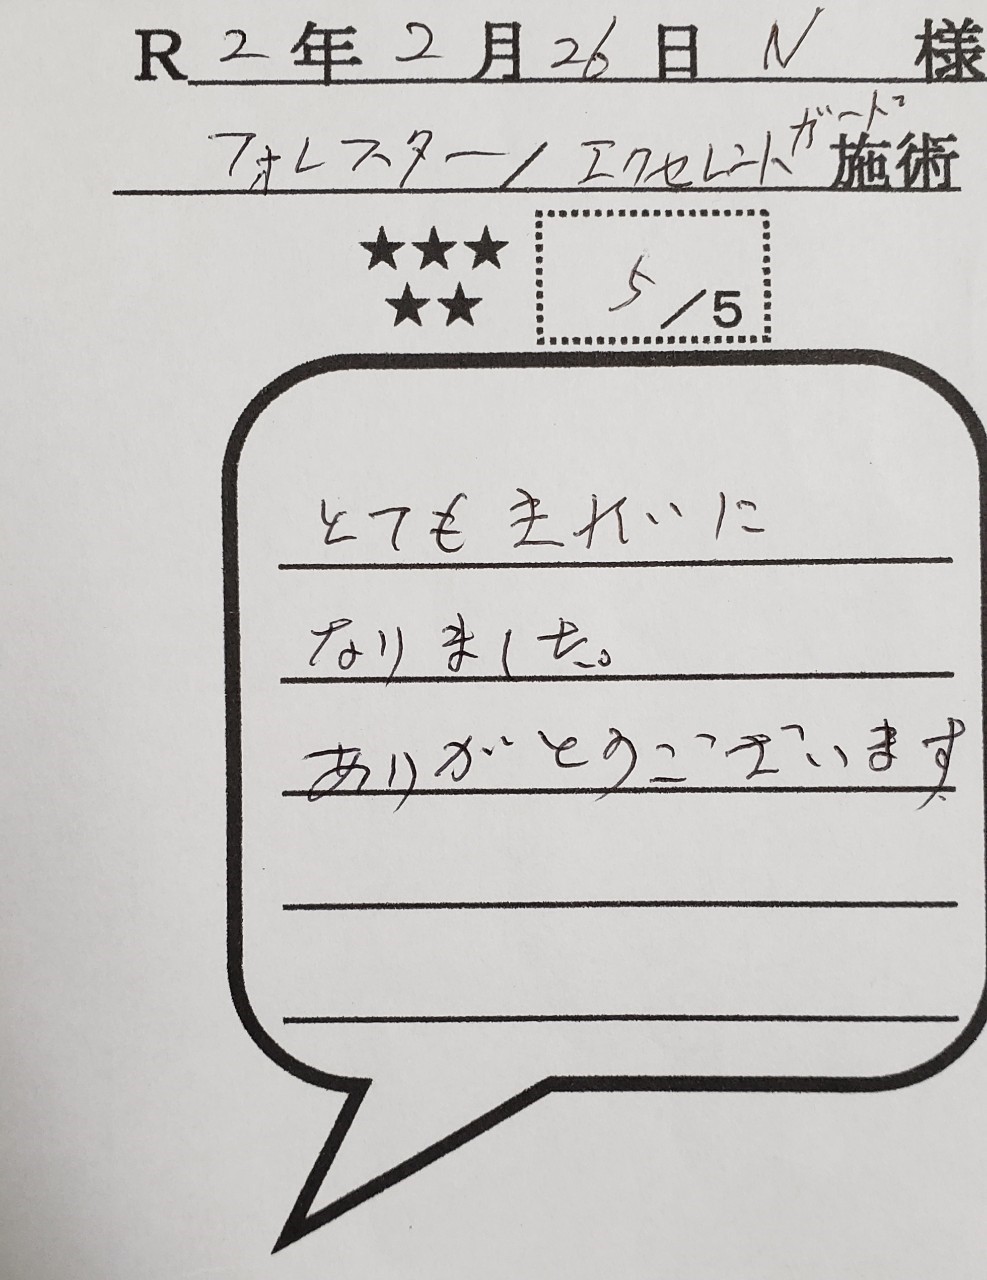 R 2年 2月26日 N 様
フォレスター/エクセレントガード施術
★★★
★★
5/5
とてもきれいに
なりました。
ありがとうございます